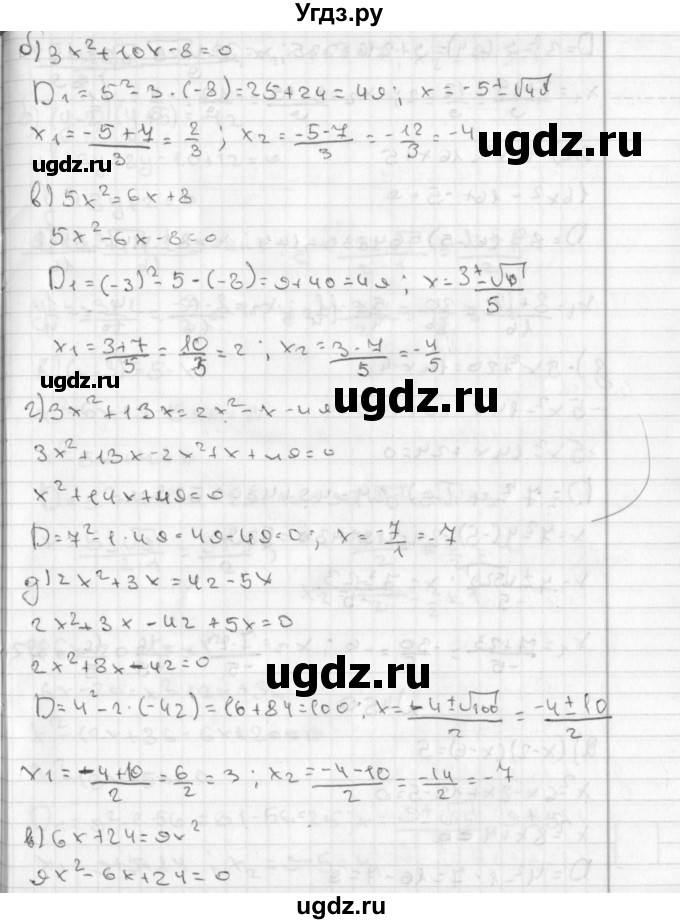 Угдз.ру
б) 3x²+10x-8=0
D₁=5²-3·(-8)=25+24=49; x=-5±√49
x₁=(-5+7)/3=2/3; x₂=(-5-7)/3=-12/3=-4
ugdz.ru
ugdz.ru
в) 5x²=6x+8
5x²-6x-8=0
D₁=(-3)²-5-(-8)=9+40=49; x=(3±√49)/5
x₁=(3+7)/5=10/5=2; x₂=(3-7)/5=-4/5
ugdz.ru
ugdz.ru
г) 3x²+13x=2x²-x-49
3x²+13x-2x²+x+49=0
x²+14x+49=0
D=7²-1·49=49-49=0; x=-7/1=-7
д) 2x²+3x=42-5x
2x²+3x-42+5x=0
2x²+8x-42=0
ugdz.ru
D=4²-2·(-42)=16+84=100; x=(-4±√100)/2=(-4±10)/2
x₁=(-4+10)/2=6/2=3; x₂=(-4-10)/2=-14/2=-7
в) 6x+24=9x²
9x²-6x+24=0
ugdz.ru
ugdz.ru